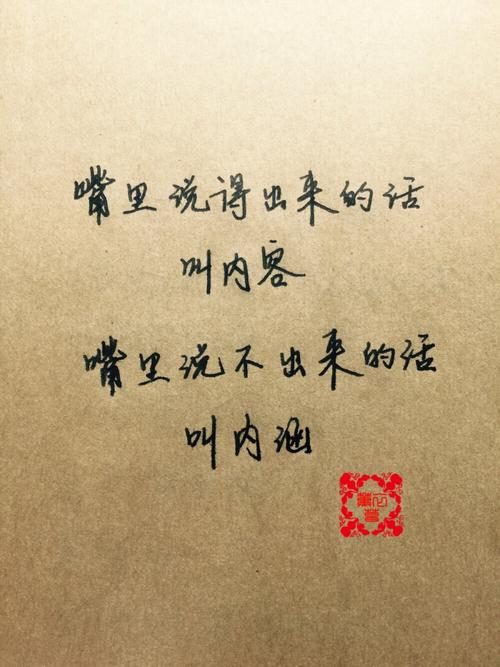 嘴里说得出来的话
叫内容
嘴里说不出来的话
叫内涵